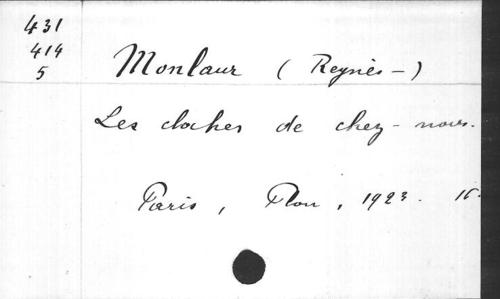 431
414
5
Monlaur ( Reynès - )
Les cloches de chez - nous.
Paris, Plon, 1923. 16